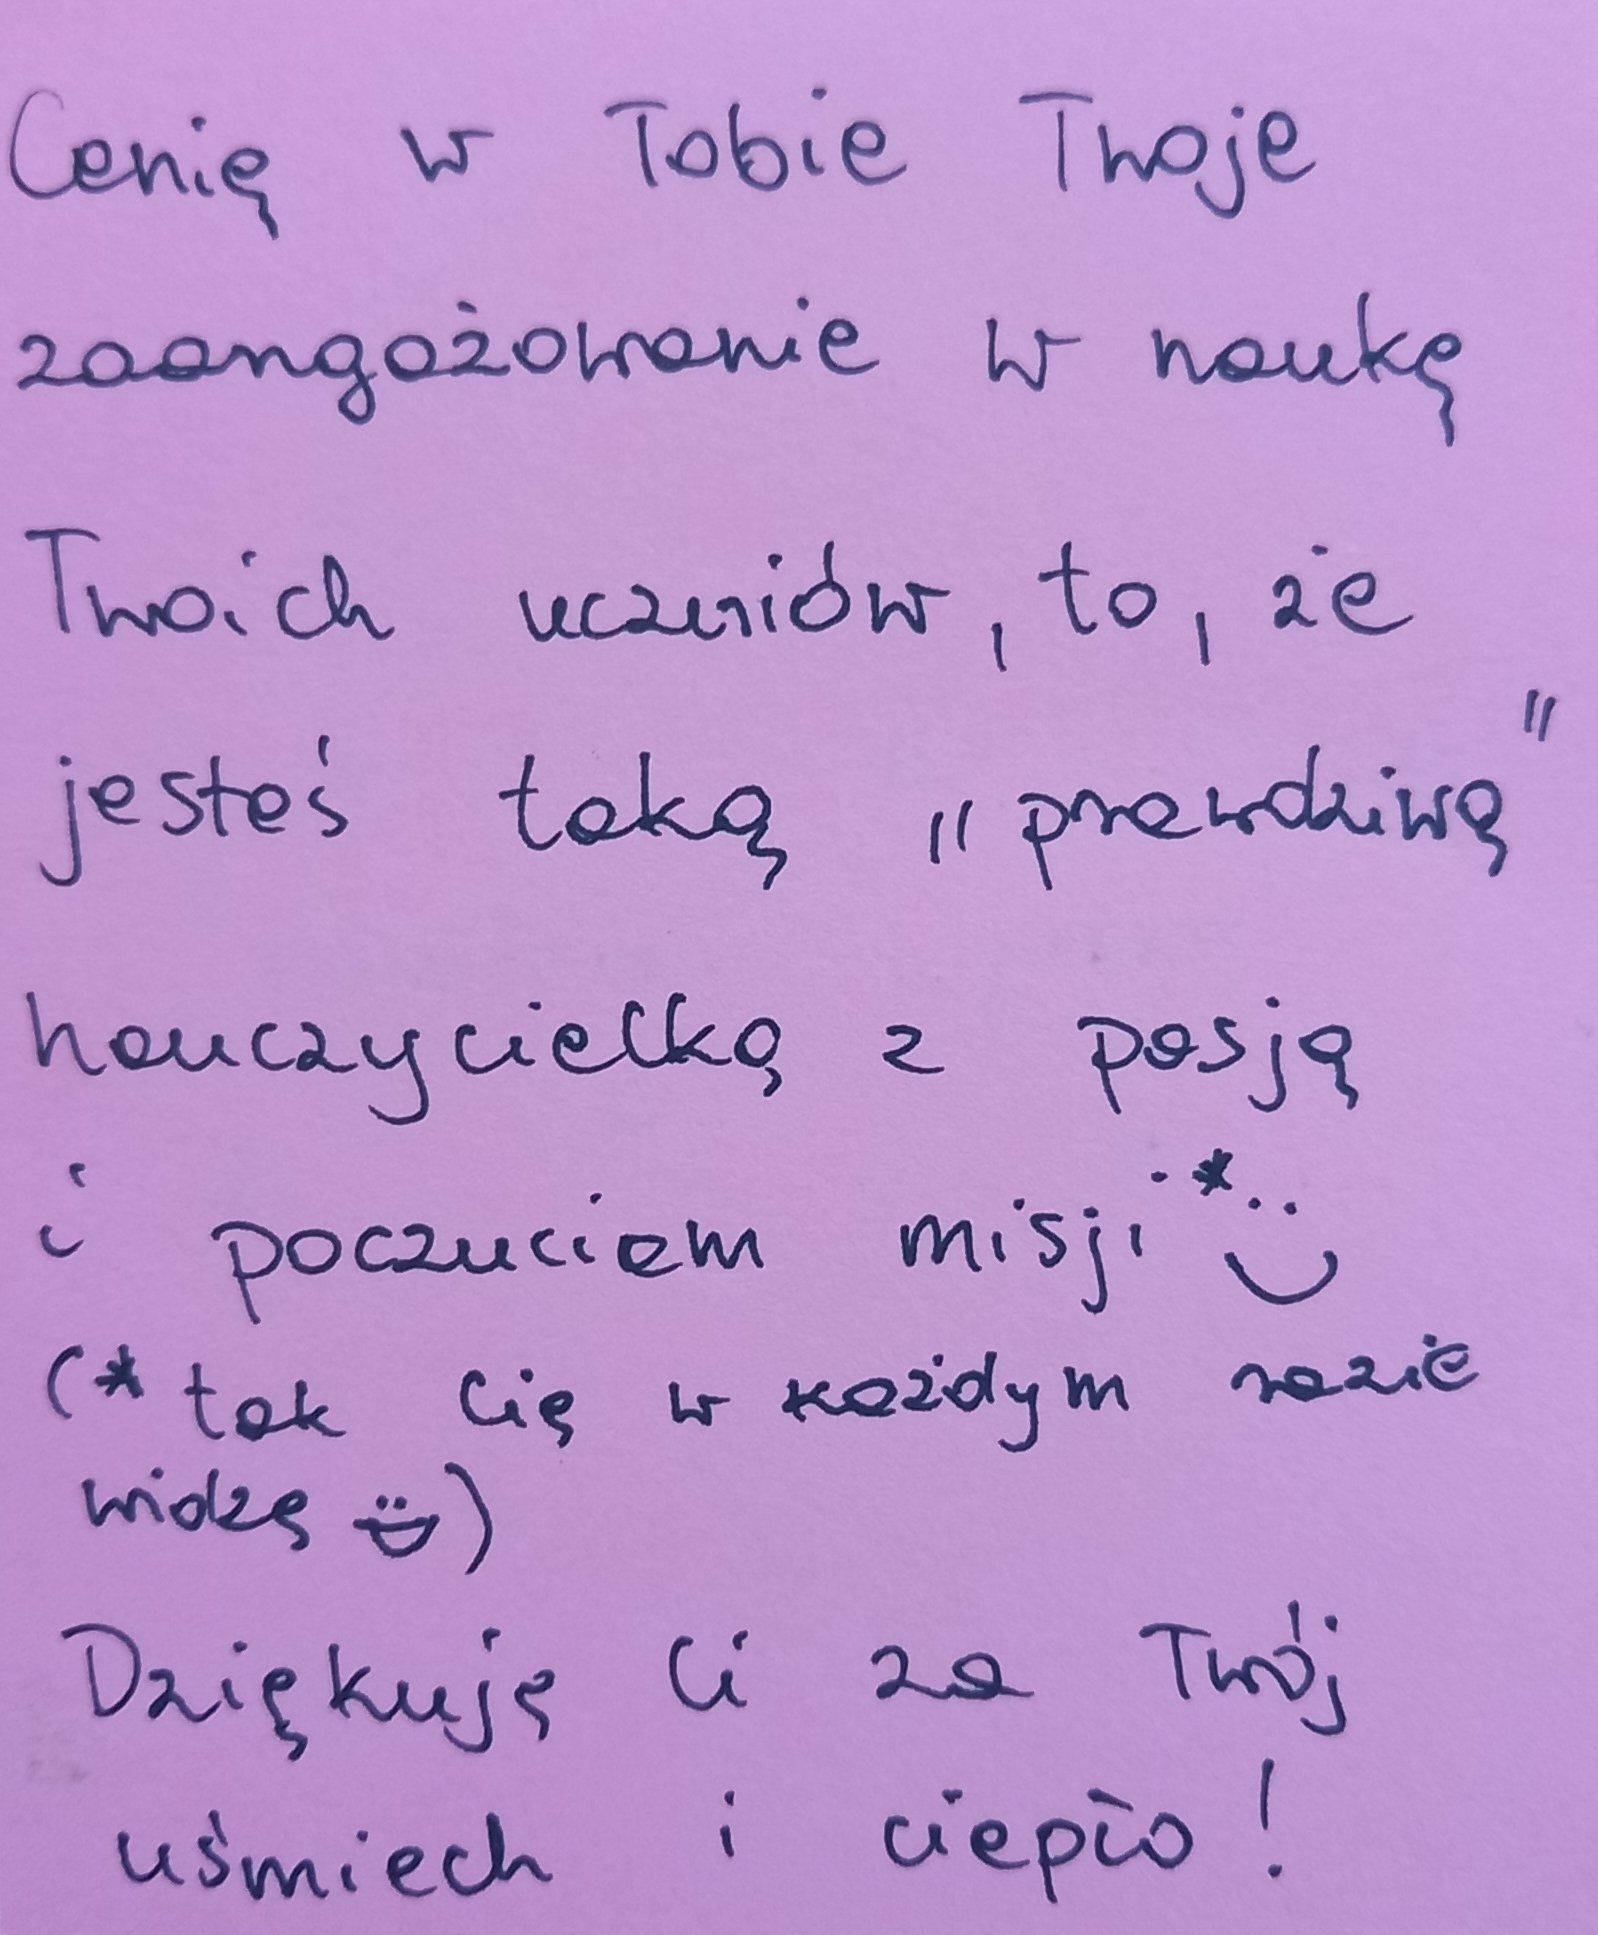 Cenię w Tobie Twoje
zaangażowanie w naukę
Twoich uczniów, to, że
jesteś taką "prawdziwą"
nauczycielką z pasją
i poczuciem misji.* :)
(* tak Cię w każdym razie
widzę :D)
Dziękuję Ci za Twój
uśmiech i ciepło!